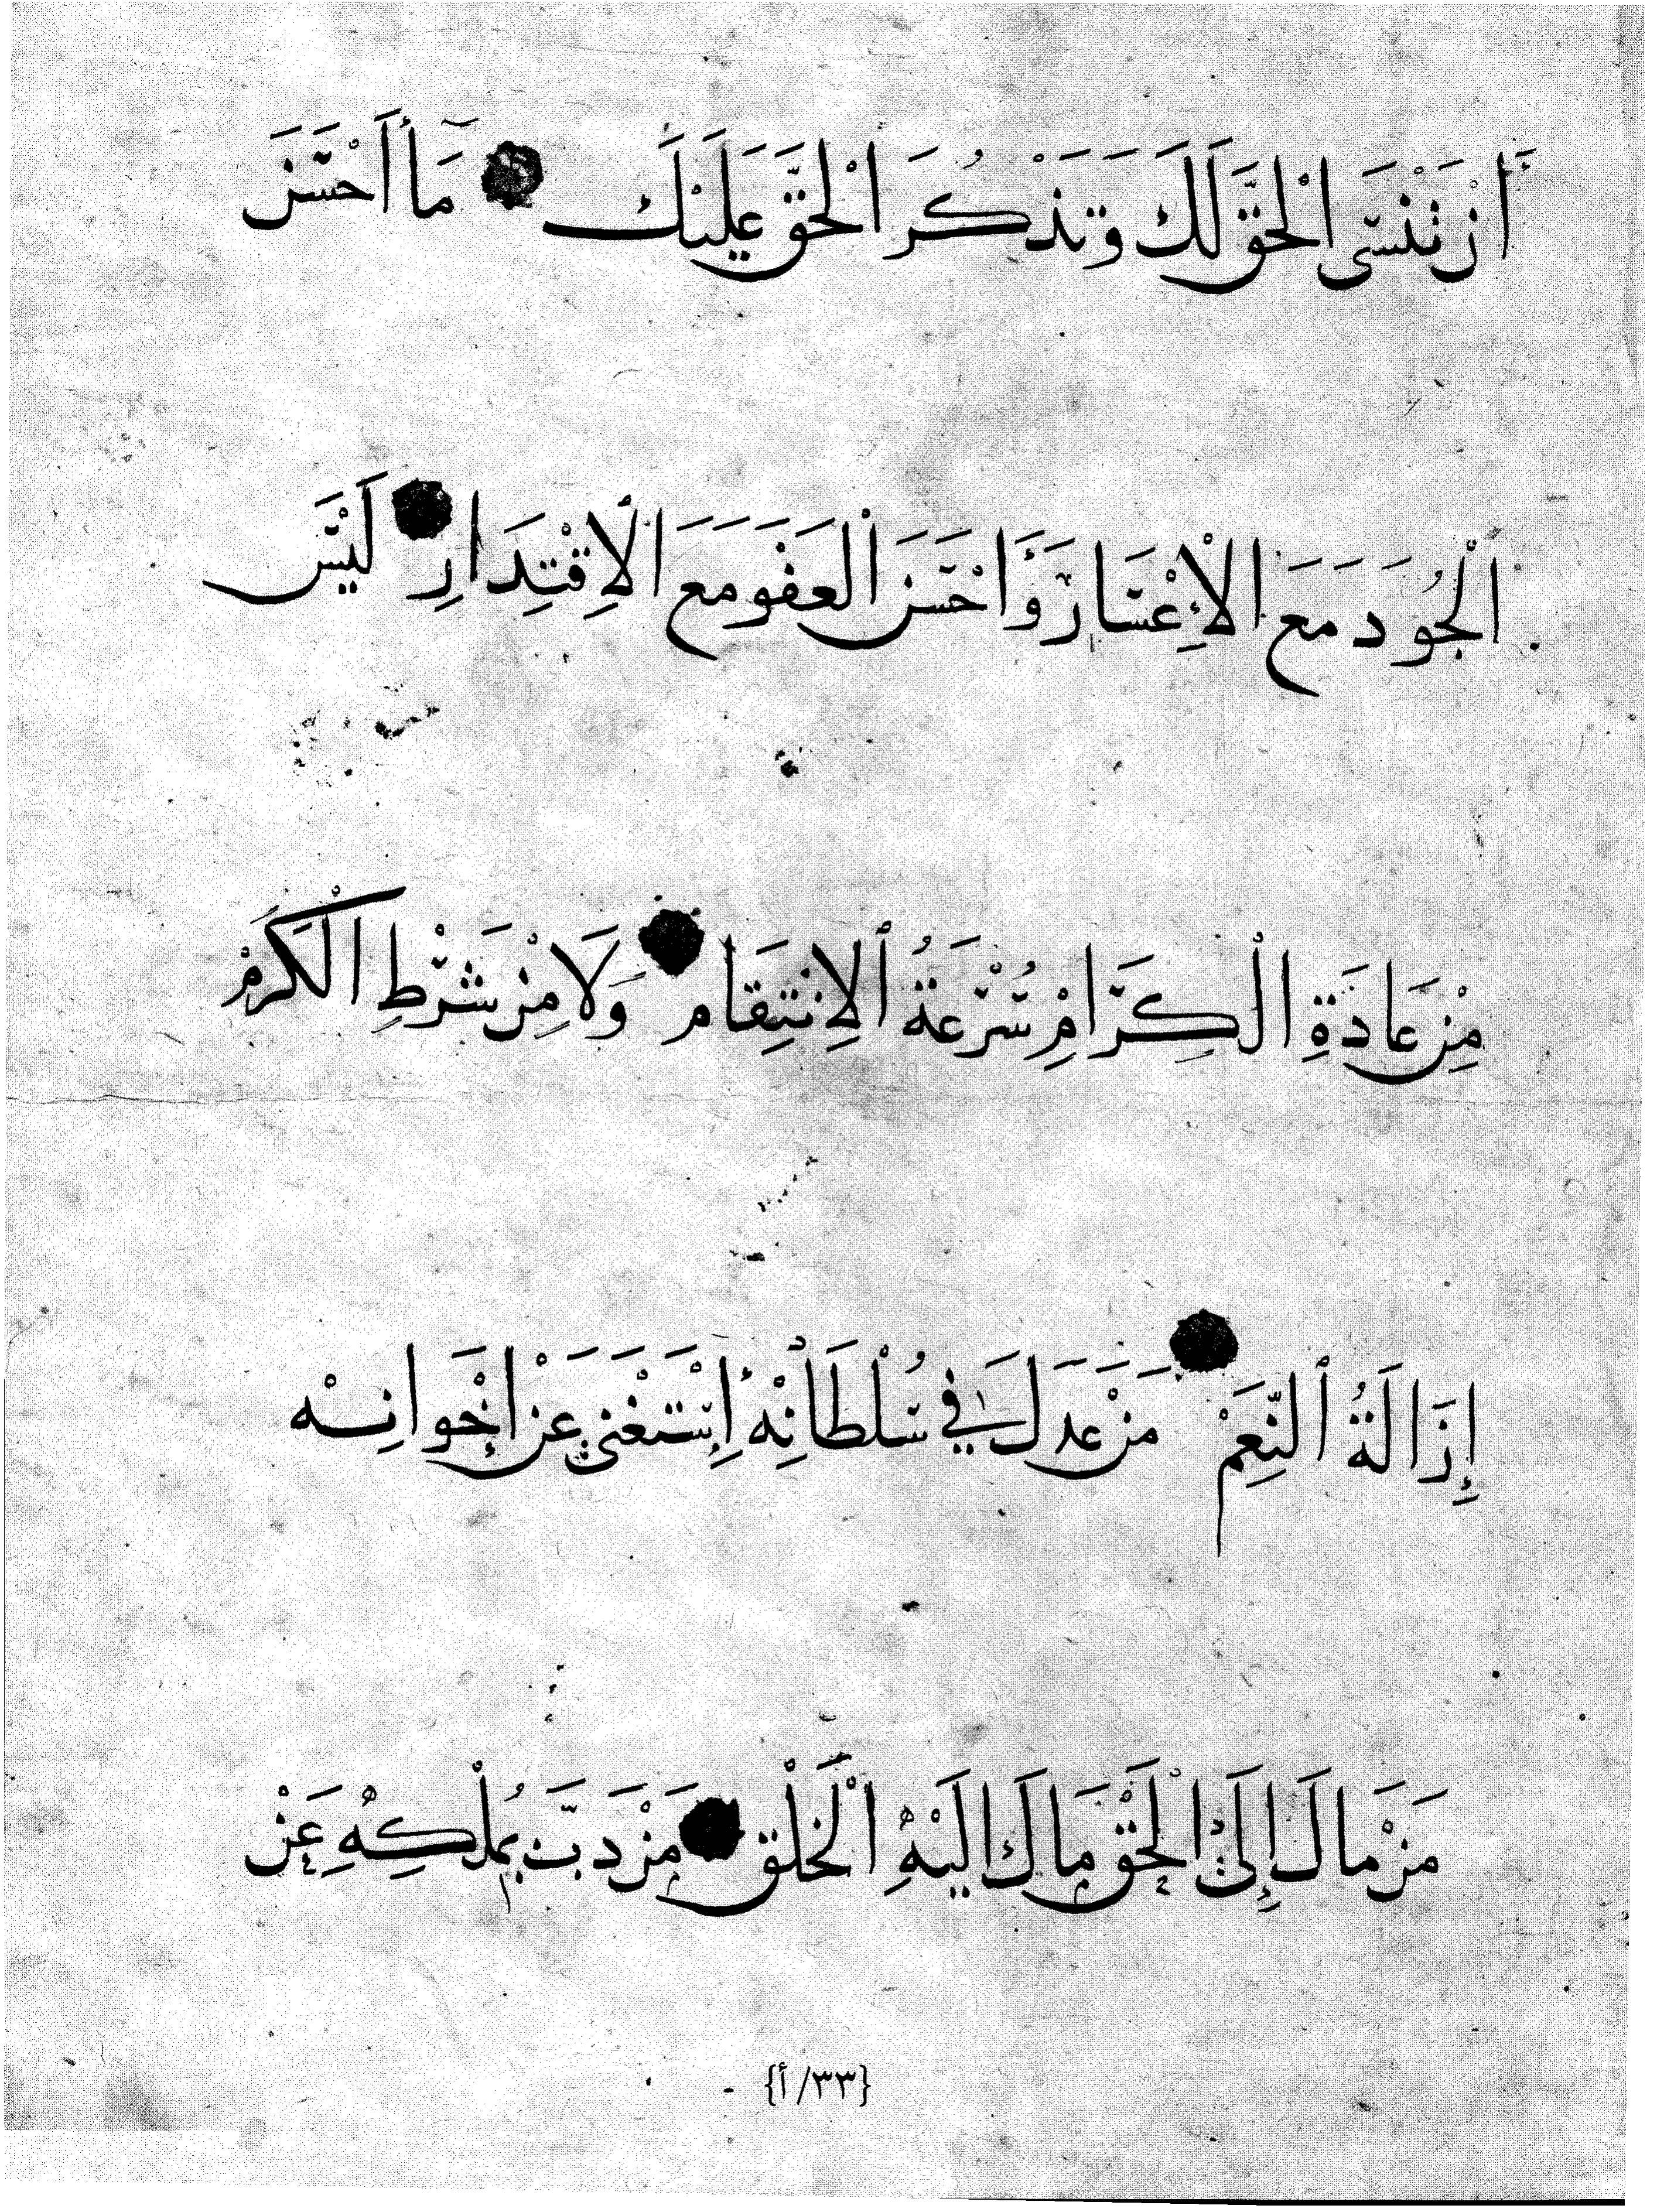 أَنْ تَنْسَى الْحَقَّ لَكَ وَتَذْكُرَ الْحَقَّ عَلَيْكَ مَا أَحْسَنَ
الْجُودَ مَعَ الْإِعْسَارِ وَأَحْسَنَ الْعَفْوَ مَعَ الْإِقْتِدَارِ لَيْسَ
مِنْ عَادَةِ الْكِرَامِ سُرْعَةُ الْإِنْتِقَامِ وَلَا مِنْ شَرْطِ الْكَرَمْ
إِزَالَةُ النِّعَمْ مَنْ عَدَلَ فِي سُلْطَانِهْ إِسْتَغْنَى عَنْ إِخْوَانِهْ
مَنْ مَالَ إِلَى الْحَقْ مَالَ إِلَيْهِ الْخَلْقْ مَنْ دَبَّ بِمُلْكِهِ عَنْ
{٣٣/أ}